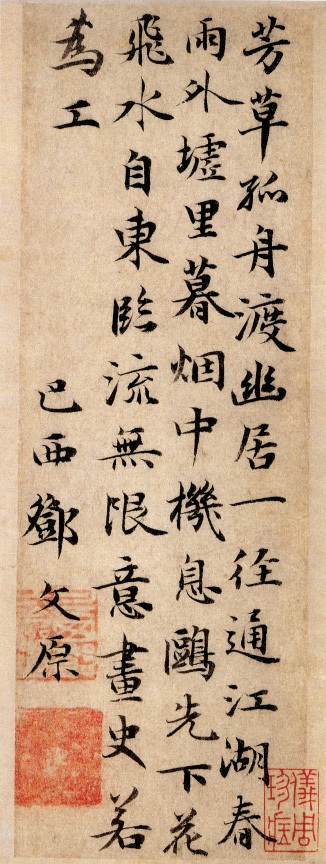 芳草孤舟渡幽居一徑通江湖春
雨外墟里暮烟中機息鷗先下花
飛水自東臨流無限意畫史若
為工
巴西鄧文原
儀周珍藏